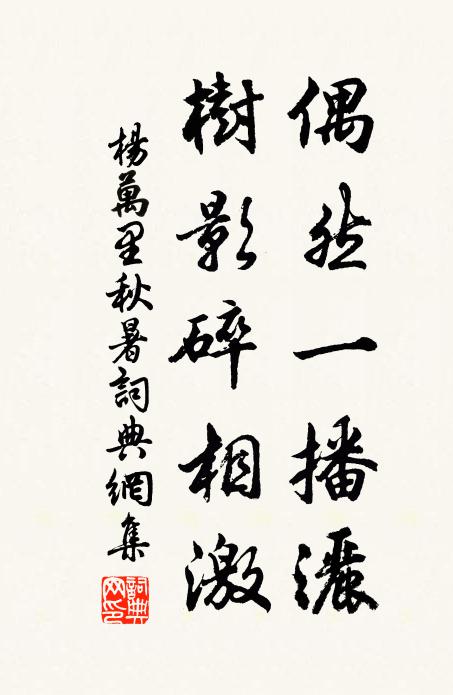 偶然一播灑
樹影碎相激
楊萬里秋暑詞典網集
詞典网印